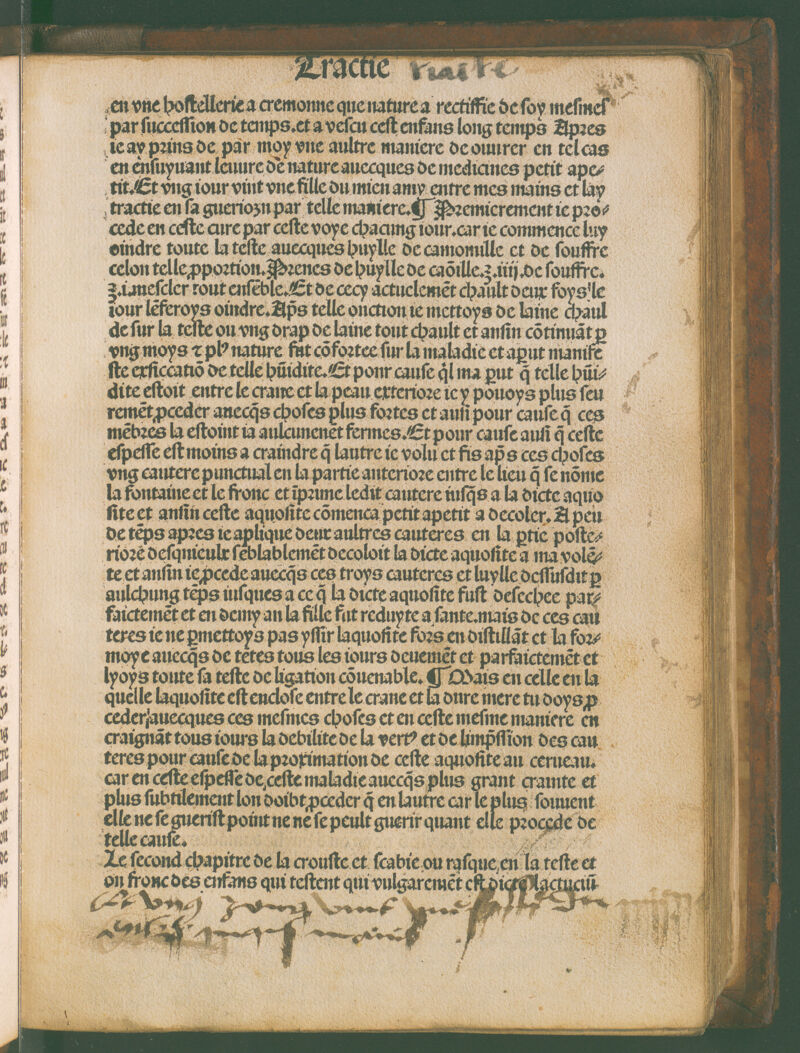 Tractie traicte
en vne hoſtellerie a cremonne que nature a rectiffie de ſoy meſmeſ
par ſucceſſion de temps.et a veſcu ceſt enfans long temps Apꝛes
ie ay pꝛins de par moy vne aultre maniere de ouurer en tel cas
en enſuyuant leuure de nature auecques de medicines petit ape⸗
tit.Et vng iour vint vne fille du mien amy entre mes mains et lay
tractie en ſa gueriozn par telle maniere.¶ Pꝛemierement ie pꝛo⸗
cede en ceſte cure par ceſte voye chacung iour.car ie commence luy
oindre toute la teſte auecques huylle de camomille et de ſouffre
celon telle ꝓpoꝛtion.Pꝛenes de huylle de caõille.ʒ.iiij.de ſouffre.
ʒ.i.meſcler tout enſẽble.Et de cecy actuelemẽt chault deux foys le
iour lẽferoys oindre.Ap̃s telle onction ie mettoys de laine chaul
de ſur la teſte ou vng drap de laine tout chault et anſin cõtinuãt ꝑ
vng moys ⁊ plꝰ nature fut cõfoꝛtee ſur la maladie et aꝑut manife
ſte exſiccatiõ de telle hũidite.Et pour cauſe q̃l ma ꝑut q̃ telle hũi⸗
dite eſtoit entre le crane et la peau exterioꝛe ie y pouoys plus ſeu
remẽt ꝓceder auecq̃s choſes plus foꝛtes et auſi pour cauſe q̃ ces
mẽbꝛes la eſtoint ia aulcunenẽt fermes.Et pour cauſe auſi q̃ ceſte
eſpeſſe eſt moins a craindre q̃ lautre ie volu et fis ap̃s ces choſes
vng cautere punctual en la partie anterioꝛe entre le lieu q̃ ſe nõme
la fontaine et le fronc et ĩpꝛime ledit cautere iuſq̃s a la dicte aquo
ſite et anſin ceſte aquoſite cõmenca petit apetit a decoler.A peu
de tẽps apꝛes ie aplique deux aultres cauteres en la ꝑtie poſte⸗
rioꝛe deſqnieulx ſẽblablemẽt decoloit la dicte aquoſite a ma volẽ⸗
te et anſin ie ꝓcede auecq̃s ces troys cauteres et luylle deſſuſdit ꝑ
aulchung tẽps iuſques a ce q̃ la dicte aquoſite fuſt deſechee par⸗
faictemẽt et en demy an la fille fut reduyte a ſante.mais de ces cau
teres ie ne ꝑmettoys pas yſſir laquoſite foꝛs en diſtillãt et la foꝛ⸗
moye auecq̃s de tẽtes tous les iours deuemẽt et parfaictemẽt et
lyoys toute ſa teſte de ligation cõuenable.¶ Mais en celle en la
quelle laquoſite eſt encloſe entre le crane et la dure mere tu doys ꝓ
ceder auecques ces meſmes choſes et en ceſte meſme maniere en
craignãt tous iours la debilite de la vertꝰ et de limp̃ſſion des cau
teres pour cauſe de la pꝛoximation de ceſte aquoſite au cerueau.
car en ceſte eſpeſſe de ceſte maladie auecq̃s plus grant crainte et
plus ſubtilement lon doibt ꝓceder q̃ en lautre car le plus ſouuent
elle ne ſe gueriſt point ne ne ſe peult guerir quant elle pꝛocede de
telle cauſe.
Le ſecond chapitre de la crouſte et ſcabie ou raſque en la teſte et
on fronc des enfans qui teſtent qui vulgaremẽt eſt dicte lactuciũ
Et vng Jour vint